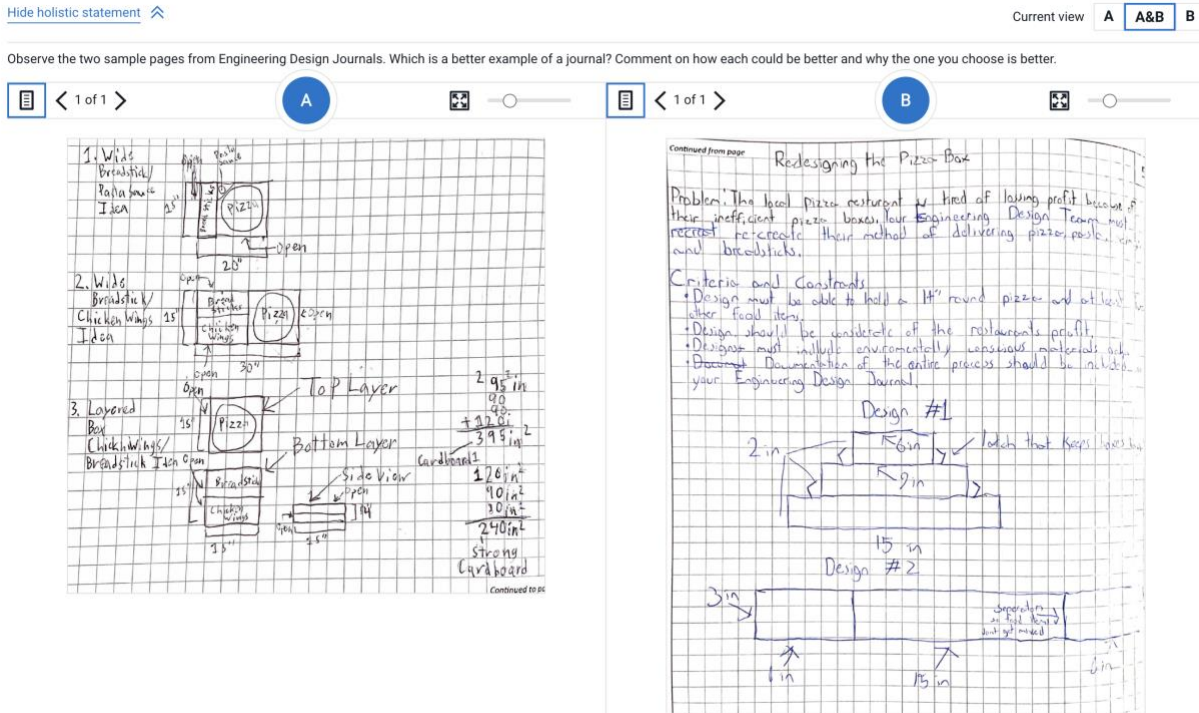 Hide holistic statement
Current view A A&B B
Observe the two sample pages from Engineering Design Journals. Which is a better example of a journal? Comment on how each could be better and why the one you choose is better.
1 of 1
A
1. Wide
Breadstick/
Pasta Sauce
Idea
Open
Pasta
Sauce
15"
Bread sticks
Pizza
Open
20"
2. Wide
Breadstick/
Chicken Wings
Idea
Open
15"
Bread
Sticks
Chicken
Wings
Pizza
Open
Open
30"
3. Layered
Box
Chicken Wings/
Breadstick Idea
Open
15"
Pizza
Top Layer
Open
15"
Breadstick
Chicken
Wings
15"
Bottom Layer
Side View
Open
Open
15"
295in²
90
90
+120
395in²
Cardboard
120in²
90in²
30in²
240in²
Strong
Cardboard
Continued to
1 of 1
B
Continued from page
Redesigning the Pizza Box
Problem: The local pizza resturant is tired of losing profit because of
their inefficient pizza boxes. Your Engineering Design Team must
re-create their method of delivering pizza, pasta,
and breadsticks.
Criteria and Constraints
• Design must be able to hold a 14" round pizza and at least
other food items.
• Design should be considerate of the restaurants profit.
• Designs must include enviromentally conscious materials
• Documentation of the entire process should be included
your Engineering Design Journal.
Design #1
2 in
6in
latch that keeps boxes
9in
15 in
Design #2
3in
Seperators
so food
dont get mixed
6 in
15 in
6in